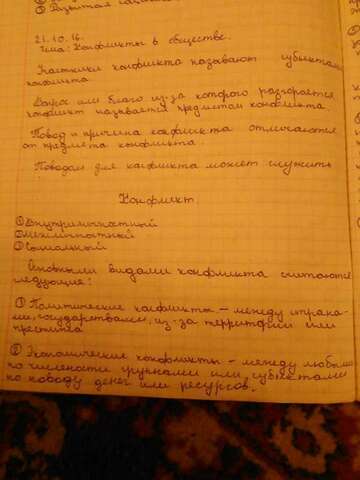 21.10.16.
Тема: Конфликты в обществе.
Участники конфликта называют субъектами
конфликта
или благо из-за которого разгорается
конфликт называется предметом конфликта.
Повод и причина конфликта отличаются
от предмета конфликта.
Поводом для конфликта может служить
Конфликт.
① Внутриличностный
② Межличностный
③ Социальный
Основными видами конфликта считаются
следующие:
① Политические конфликты – между
государствами, из-за территории или
престижа
② Экономические конфликты – между любыми
по числености группами или субъектами
по поводу денег или ресурсов.